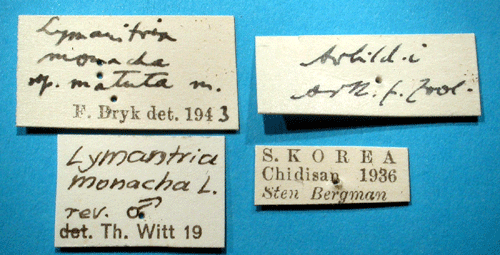 Lymantria
monacha
sp. matuta m.
F. Bryk det. 1943
Avbild. i
Ark. f. Zool.
Lymantria
monacha L.
rev. ♂
det. Th. Witt 19
S. KOREA
Chidisan 1936
Sten Bergman